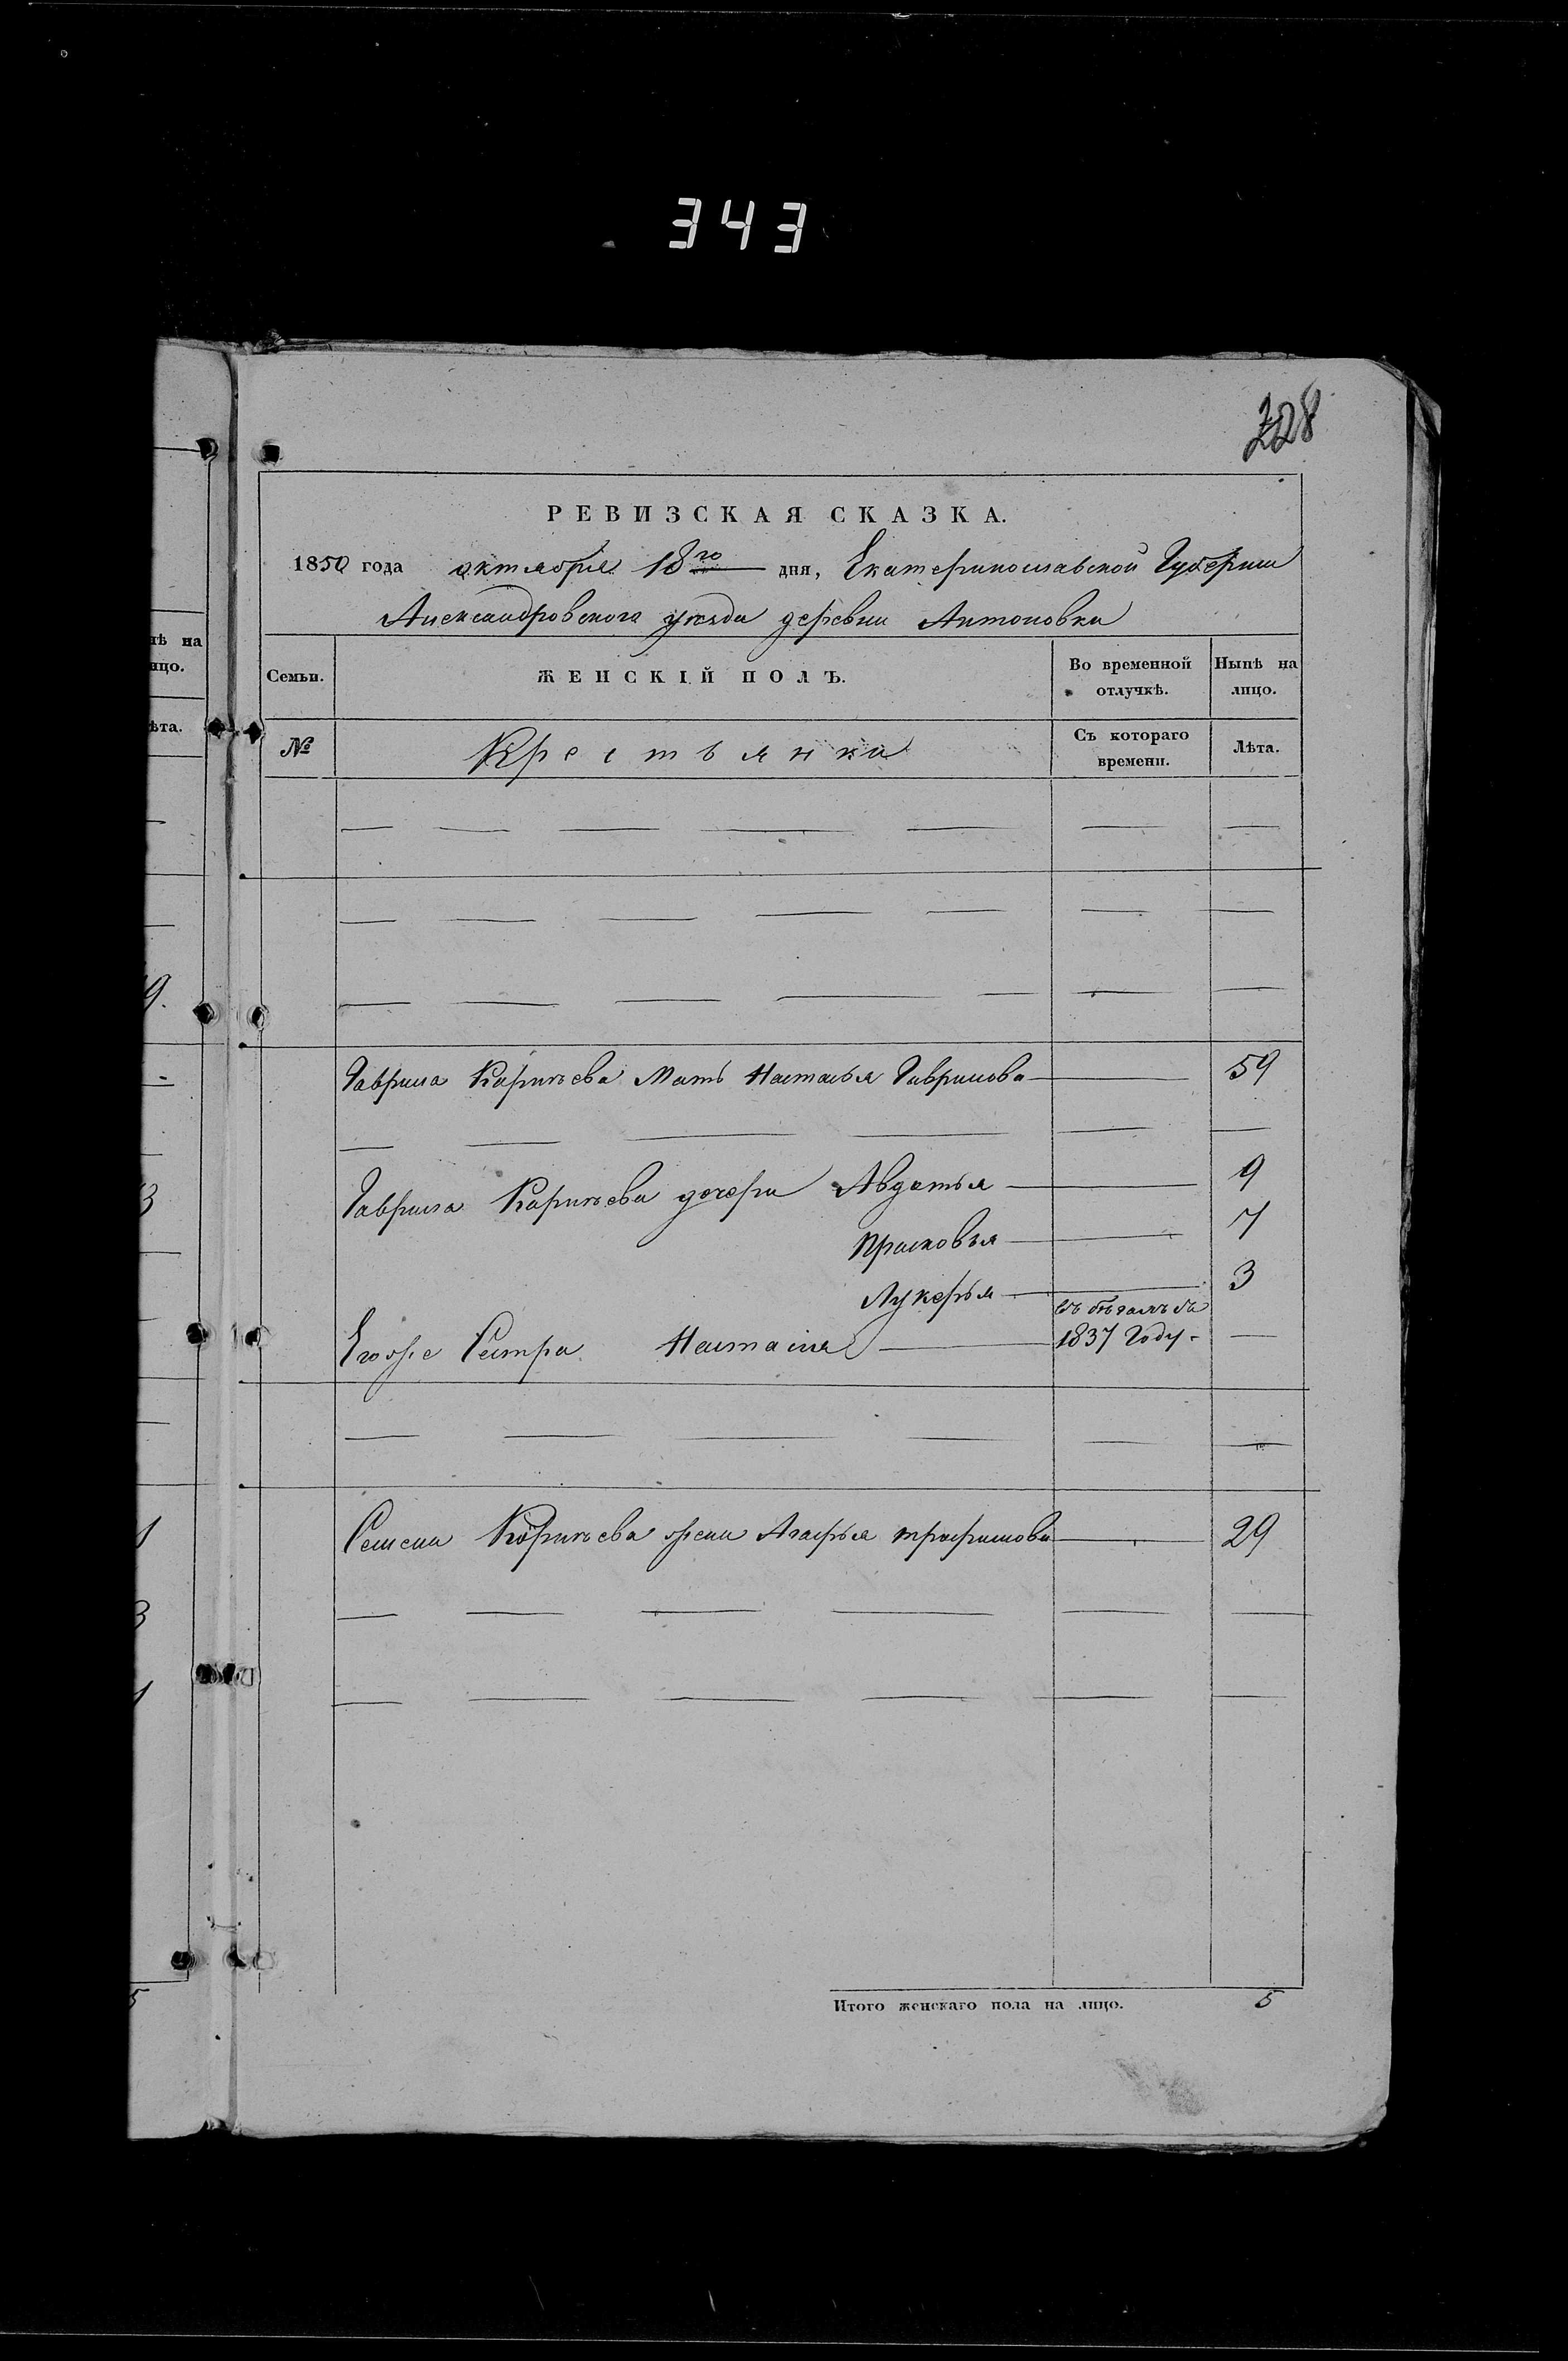 343
328
РЕВИЗСКАЯ СКАЗКА.
1850 года октября 18го дня, Екатеринославской Губернiи
Александровскога уезда деревни Антоновки
Семьи.
ЖЕНСКIЙ ПОЛЪ.
Во временной отлучкѣ.
Нынѣ на лицо.
№
Крестьянки
Съ котораго времени.
Лѣта.
Гаврила Карнѣева Мать Настасья Гаврилова 59
Гаврила Карнѣева дочери Авдотья 9
Прасковья 7
Лукерья 3
въ
Егоже Сестра Настасiя 1837 Году
Семена Корнѣева жена Агафья трофимова 29
Итого женскаго пола на лицо. 5
нѣ на
ицо.
ѣта.
9.
3
1
3
1
5